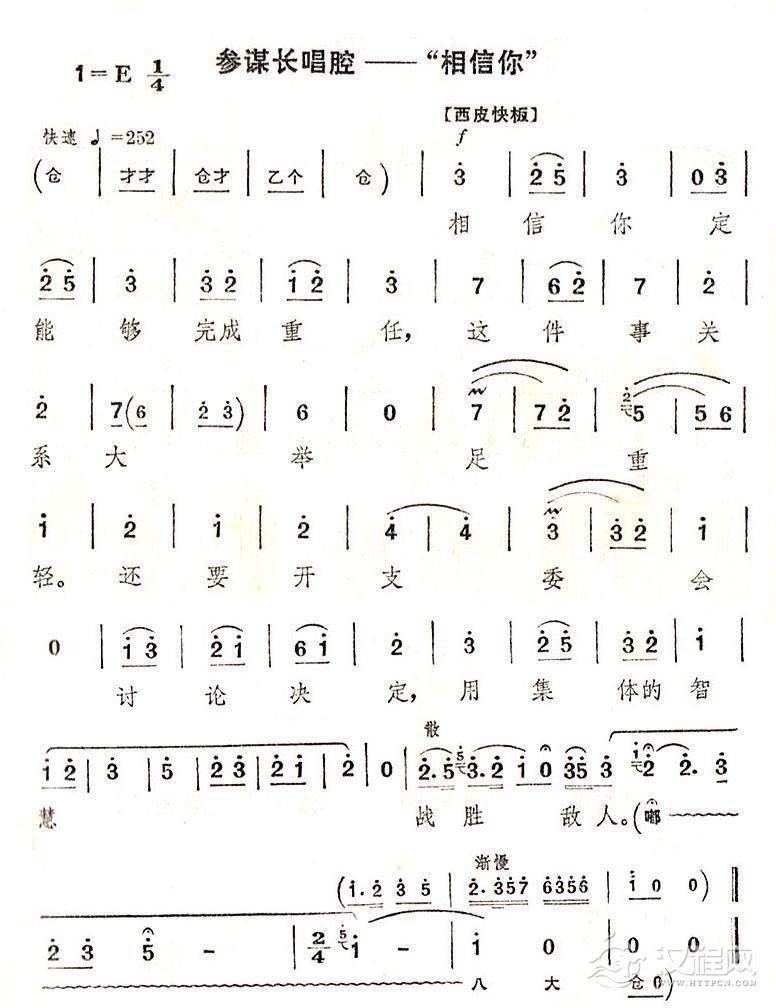 参谋长唱腔——“相信你”
1=E 1/4
【西皮快板】
快速 ♩=252 f
(仓 | 才才 | 仓才 | 乙个 | 仓) | 3̇ | 2̇ 5̇ | 3̇ | 0 3̇ |
相 信 你 定
2̇ 5̇ | 3̇ | 3̇ 2̇ | 1̇ 2̇ | 3̇ | 7 | 6 2̇ | 7 | 2̇ |
能 够 完成 重 任, 这 件 事 关
2̇ | 7(6 | 2̇ 3̇) | 6 | 0 | 7 | 7 2̇ | 5 | 5 6 |
系 大 举 足 重
1̇ | 2̇ | 1̇ | 2̇ | 4̇ | 4̇ | 3̇ | 3̇ 2̇ | 1̇ |
轻。还 要 开 支 委 会
0 | 1̇ 3̇ | 2̇ 1̇ | 6 1̇ | 2̇ | 3̇ | 2̇ 5̇ | 3̇ 2̇ | 1̇ |
讨 论 决 定, 用 集 体的 智
散
1̇ 2̇ | 3̇ | 5̇ | 2̇ 3̇ | 2̇ 1̇ | 2̇ | 0 | 2̇. 5̇ 3̇. 2̇ 1̇ 0 3̇5̇ 3̇ | 2̇ 2̇. 3̇
慧 战 胜 敌 人。(嘟
渐慢
(1̇. 2̇ 3̇ 5̇ | 2̇. 3̇5̇7̇ 6̇3̇5̇6̇ | 1̇ 0 0)
2̇ 3̇ 5̇ - | 2/4 1̇ - | 1̇ 0 | 0 0
八 大 仓 0)
汉程网
WWW.HTTPCN.COM